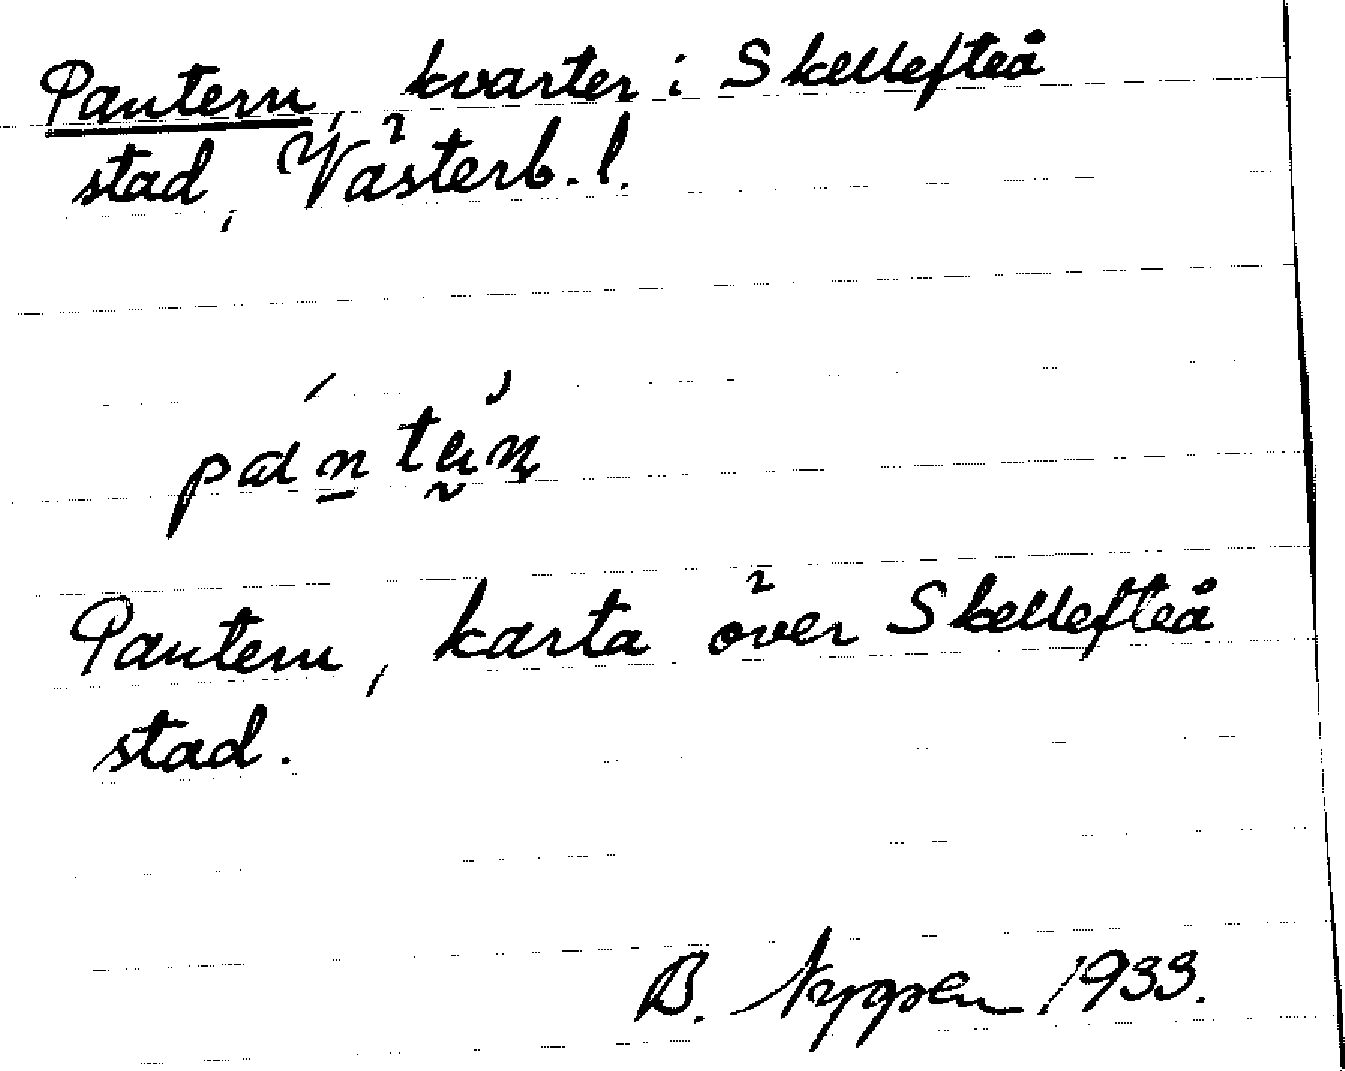 Pantern, kvarter i Skellefteå
stad, Västerb. l.
Pantern, karta över Skellefteå
stad.
B. Nygren 1933.